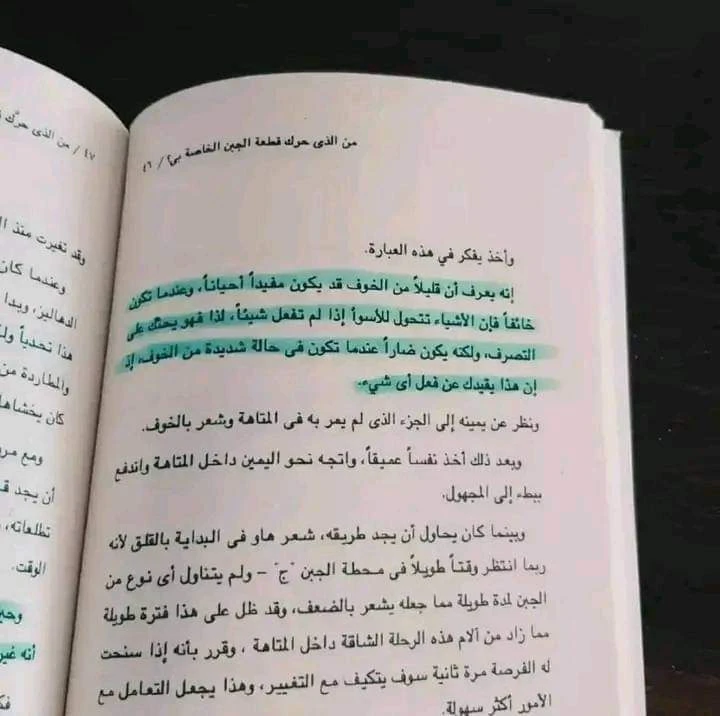 من الذى حرك قطعة الجبن الخاصة بي؟ / ٤٦
وأخذ يفكر في هذه العبارة.
إنه يعرف أن قليلاً من الخوف قد يكون مفيداً أحياناً، وعندما تكون
خائفاً فإن الأشياء تتحول للأسوأ إذا لم تفعل شيئاً، لذا فهو يحثك على
التصرف، ولكنه يكون ضاراً عندما تكون فى حالة شديدة من الخوف، إذ
إن هذا يقيدك عن فعل أى شيء.
ونظر عن يمينه إلى الجزء الذى لم يمر به فى المتاهة وشعر بالخوف.
وبعد ذلك أخذ نفساً عميقاً، واتجه نحو اليمين داخل المتاهة واندفع
ببطء إلى المجهول.
وبينما كان يحاول أن يجد طريقه، شعر هاو فى البداية بالقلق لأنه
ربما انتظر وقتاً طويلاً فى محطة الجبن "ج" – ولم يتناول أى نوع من
الجبن لمدة طويلة مما جعله يشعر بالضعف، وقد ظل على هذا فترة طويلة
مما زاد من آلام هذه الرحلة الشاقة داخل المتاهة ، وقرر بأنه إذا سنحت
له الفرصة مرة ثانية سوف يتكيف مع التغيير، وهذا يجعل التعامل مع
الأمور أكثر سهولة.
٤٧ / من الذى حرك
وقد تغيرت منذ
وعندما كان
الدهاليز، وبدا
هذا تحدياً
والمطاردة من
كان يخشاها
ومع
أن يجد
تطلعاته،
الوقت.
أنه غير